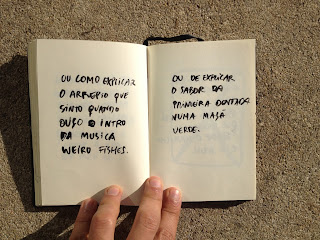 OU COMO EXPLICAR
O ARREPIO QUE
SINTO QUANDO
OUÇO O INTRO
DA MUSICA
WEIRD FISHES.
OU DE EXPLICAR
O SABOR DA
PRIMEIRA DENTADA
NUMA MAÇÃ
VERDE.